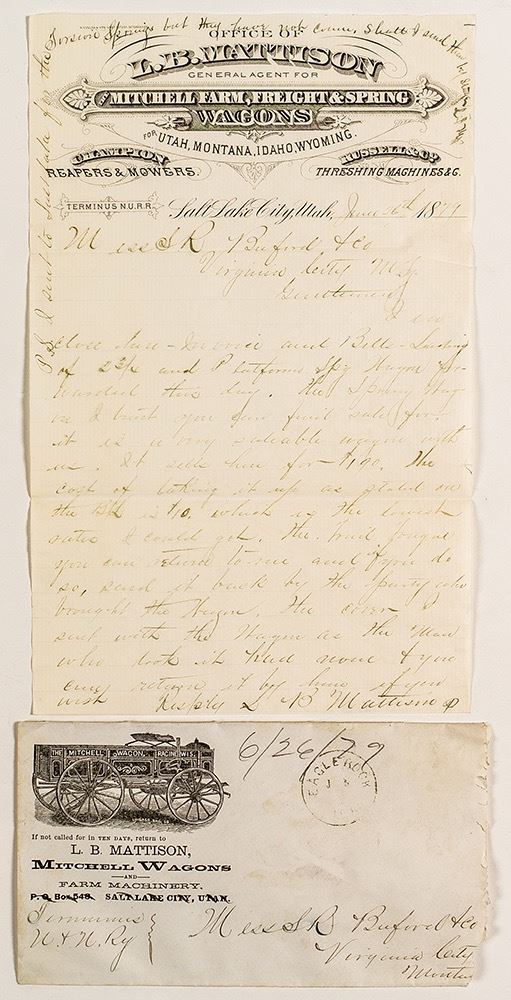 OFFICE OF
L.B. MATTISON
GENERAL AGENT FOR
MITCHELL FARM, FREIGHT & SPRING
WAGONS
FOR UTAH, MONTANA, IDAHO, WYOMING.
CHAMPION
REAPERS & MOWERS.
RUSSELL & CO
THRESHING MACHINES &C.
TERMINUS N.U.R.R.
Salt Lake City, Utah, June 26th 1879
Mess S R Buford & Co
Virginia City M.T.
Gentlemen
I en-
close Invoice and Bill Lading
of 2 3/4 and Platform Spg Wagon for-
warded this day. The Spring Wag
on I trust you can find sale for.
it is a very saleable wagon with
us. It sells here for $190. The
cost of taking it up as stated in
the B/L is $10. which is the lowest
rates I could get. The Trail Tongue
you can return to me and if you do
so, send it back by the party who
brought the Wagon. The cover I
sent with the Wagon as the Man
who took it had none & you
can return it by him if you
wish Resply L B Mattison
P.S. I sent to for the
Torsion Springs but they have not come. Shall I send them by
THE MITCHELL WAGON, RACINE WIS.
6/26/79
EAGLE ROCK
If not called for in TEN DAYS, return to
L. B. MATTISON,
MITCHELL WAGONS
AND
FARM MACHINERY,
P. O. Box 548. SALT LAKE CITY, UTAH.
Terminus
U & N. Ry
Mess S R Buford & Co
Virginia City
Montana